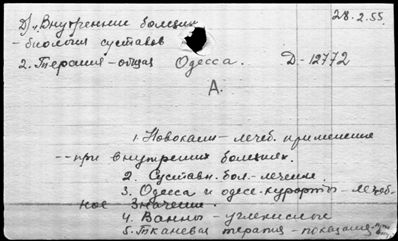 28.2.55.
Д).Внутренние болезни
- биология суставов
2. Терапия - общая Одесса. Д-12772
А.
1. Новокаин - лечеб. применение
-- при внутренних болезнях.
2. Суставн. бол. - лечение.
3. Одесса и одес. курорты - лечеб-
ное значение.
4. Ванны - углекислые
5. Тканевая терапия - показания